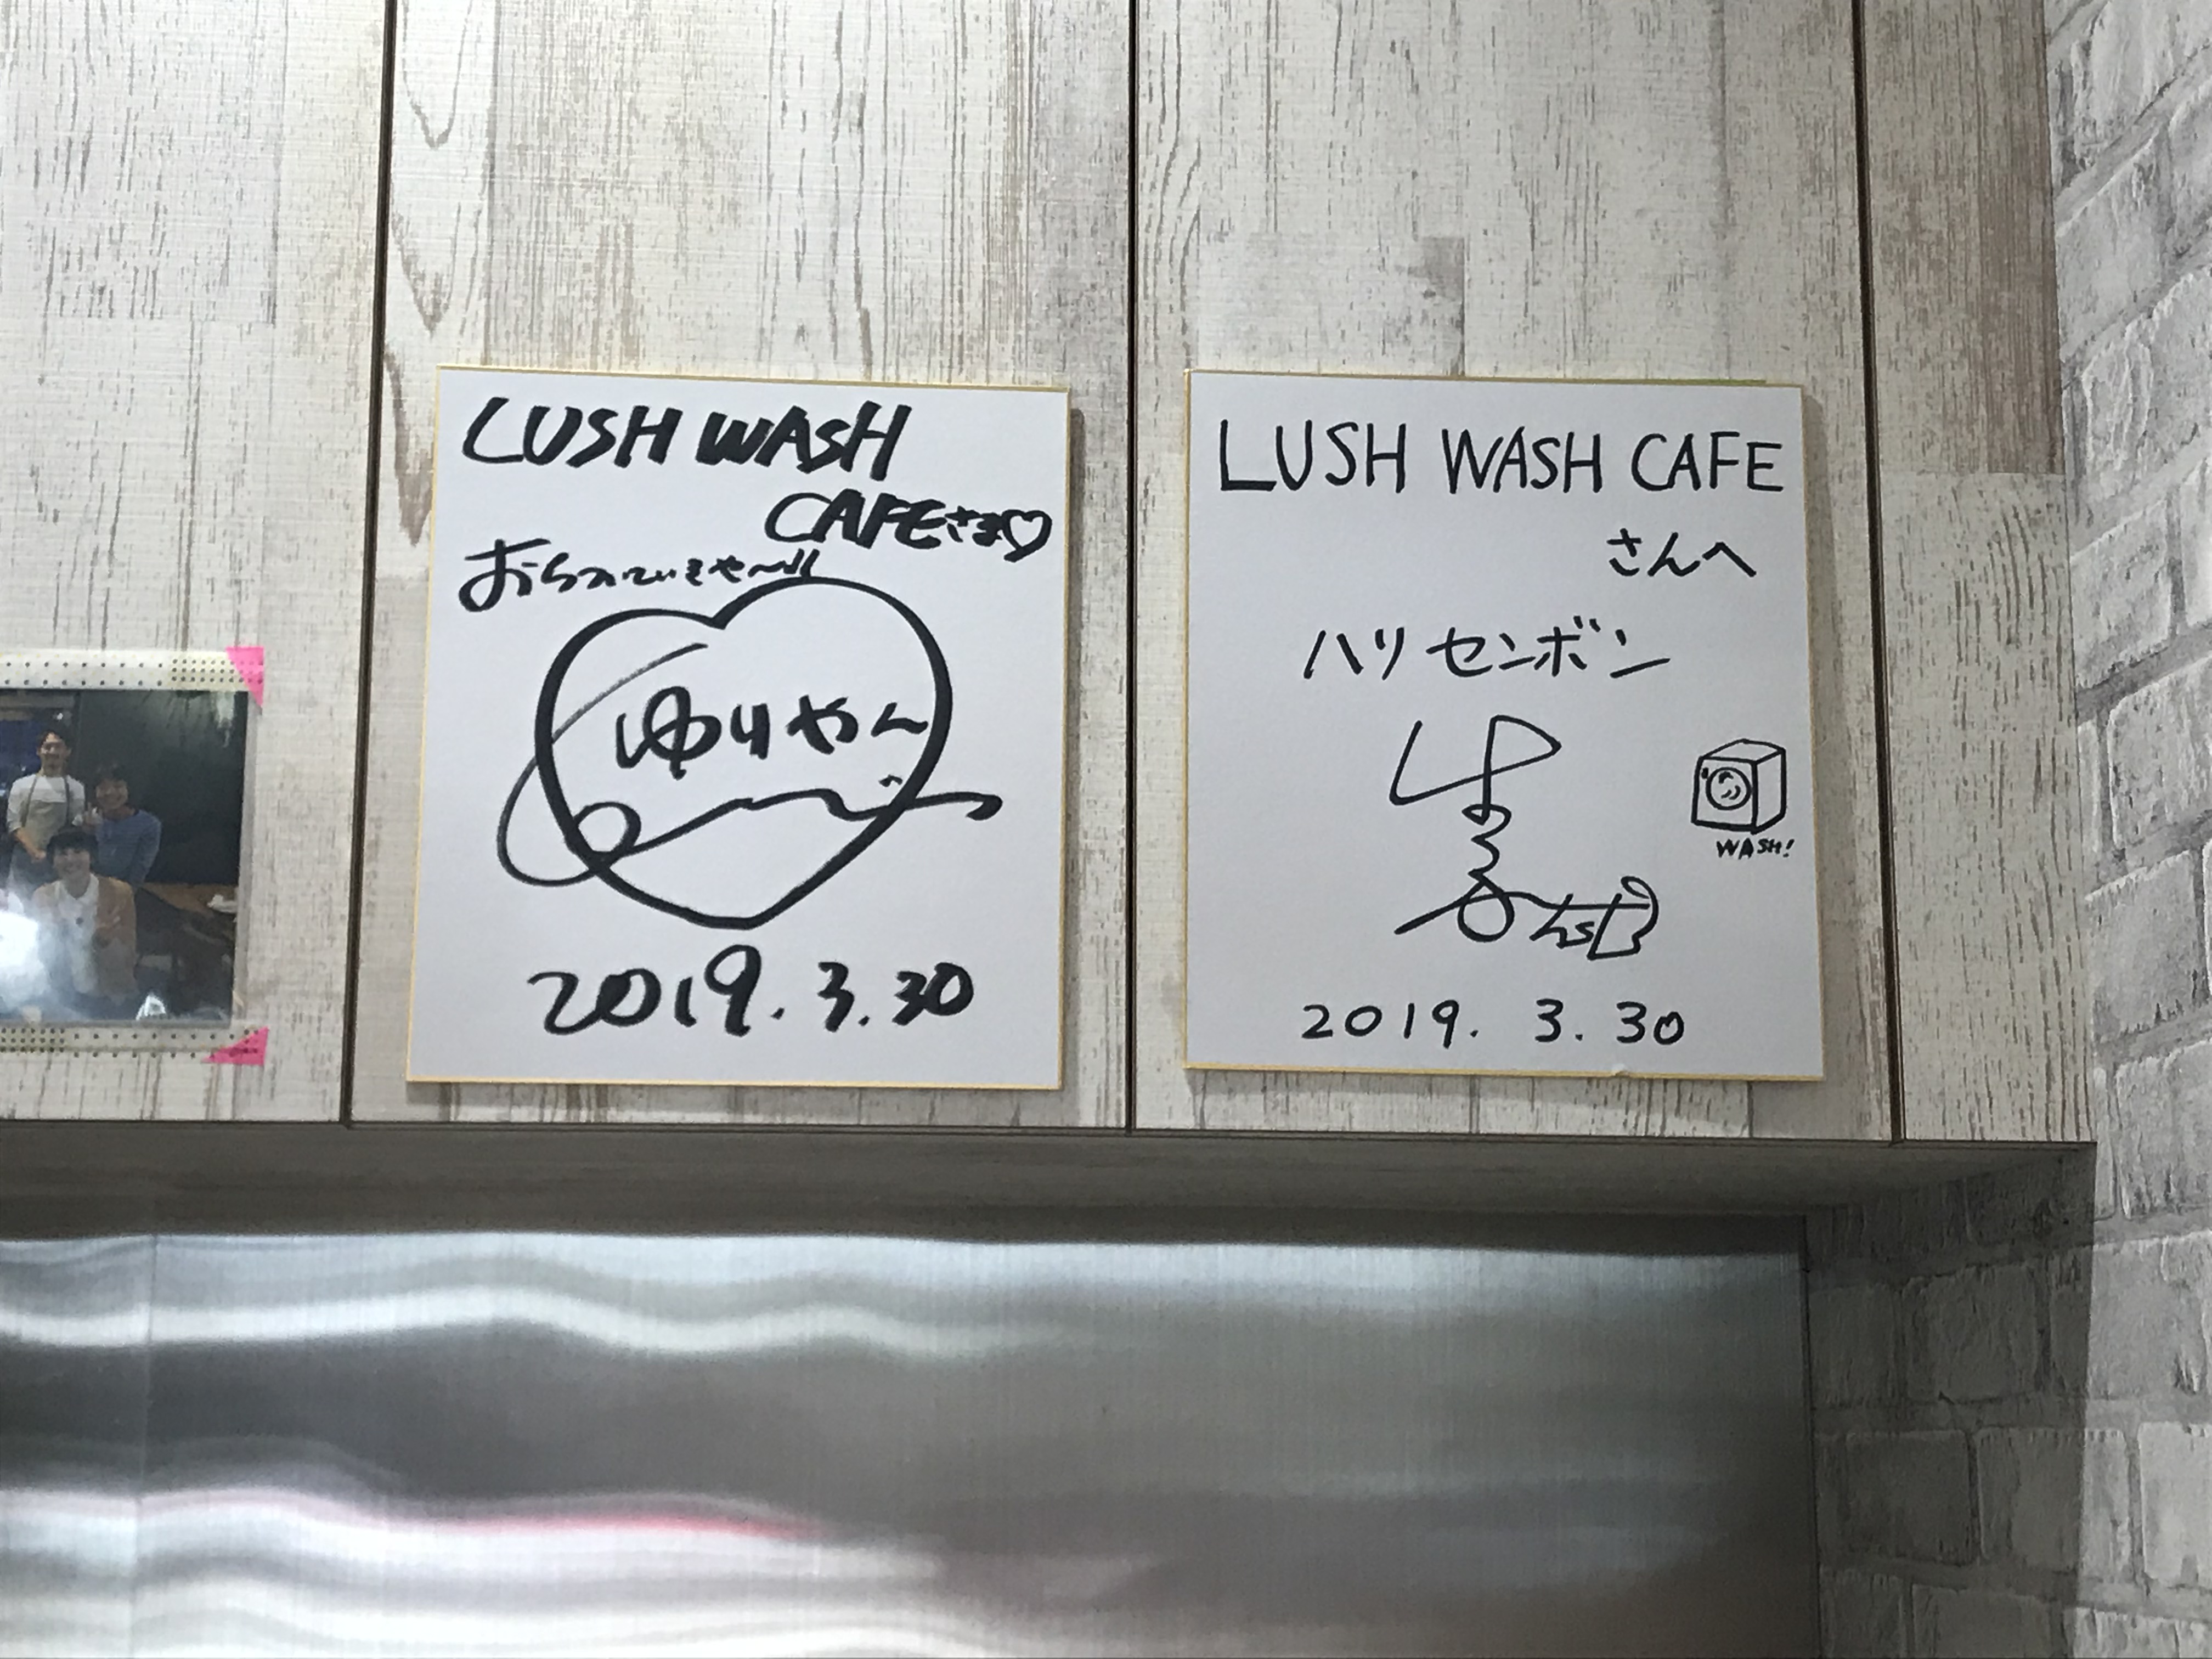 LUSH WASH
CAFEさま♡
ゆりやん
2019.3.30
LUSH WASH CAFE
さんへ
ハリセンボン
WASH!
2019. 3. 30